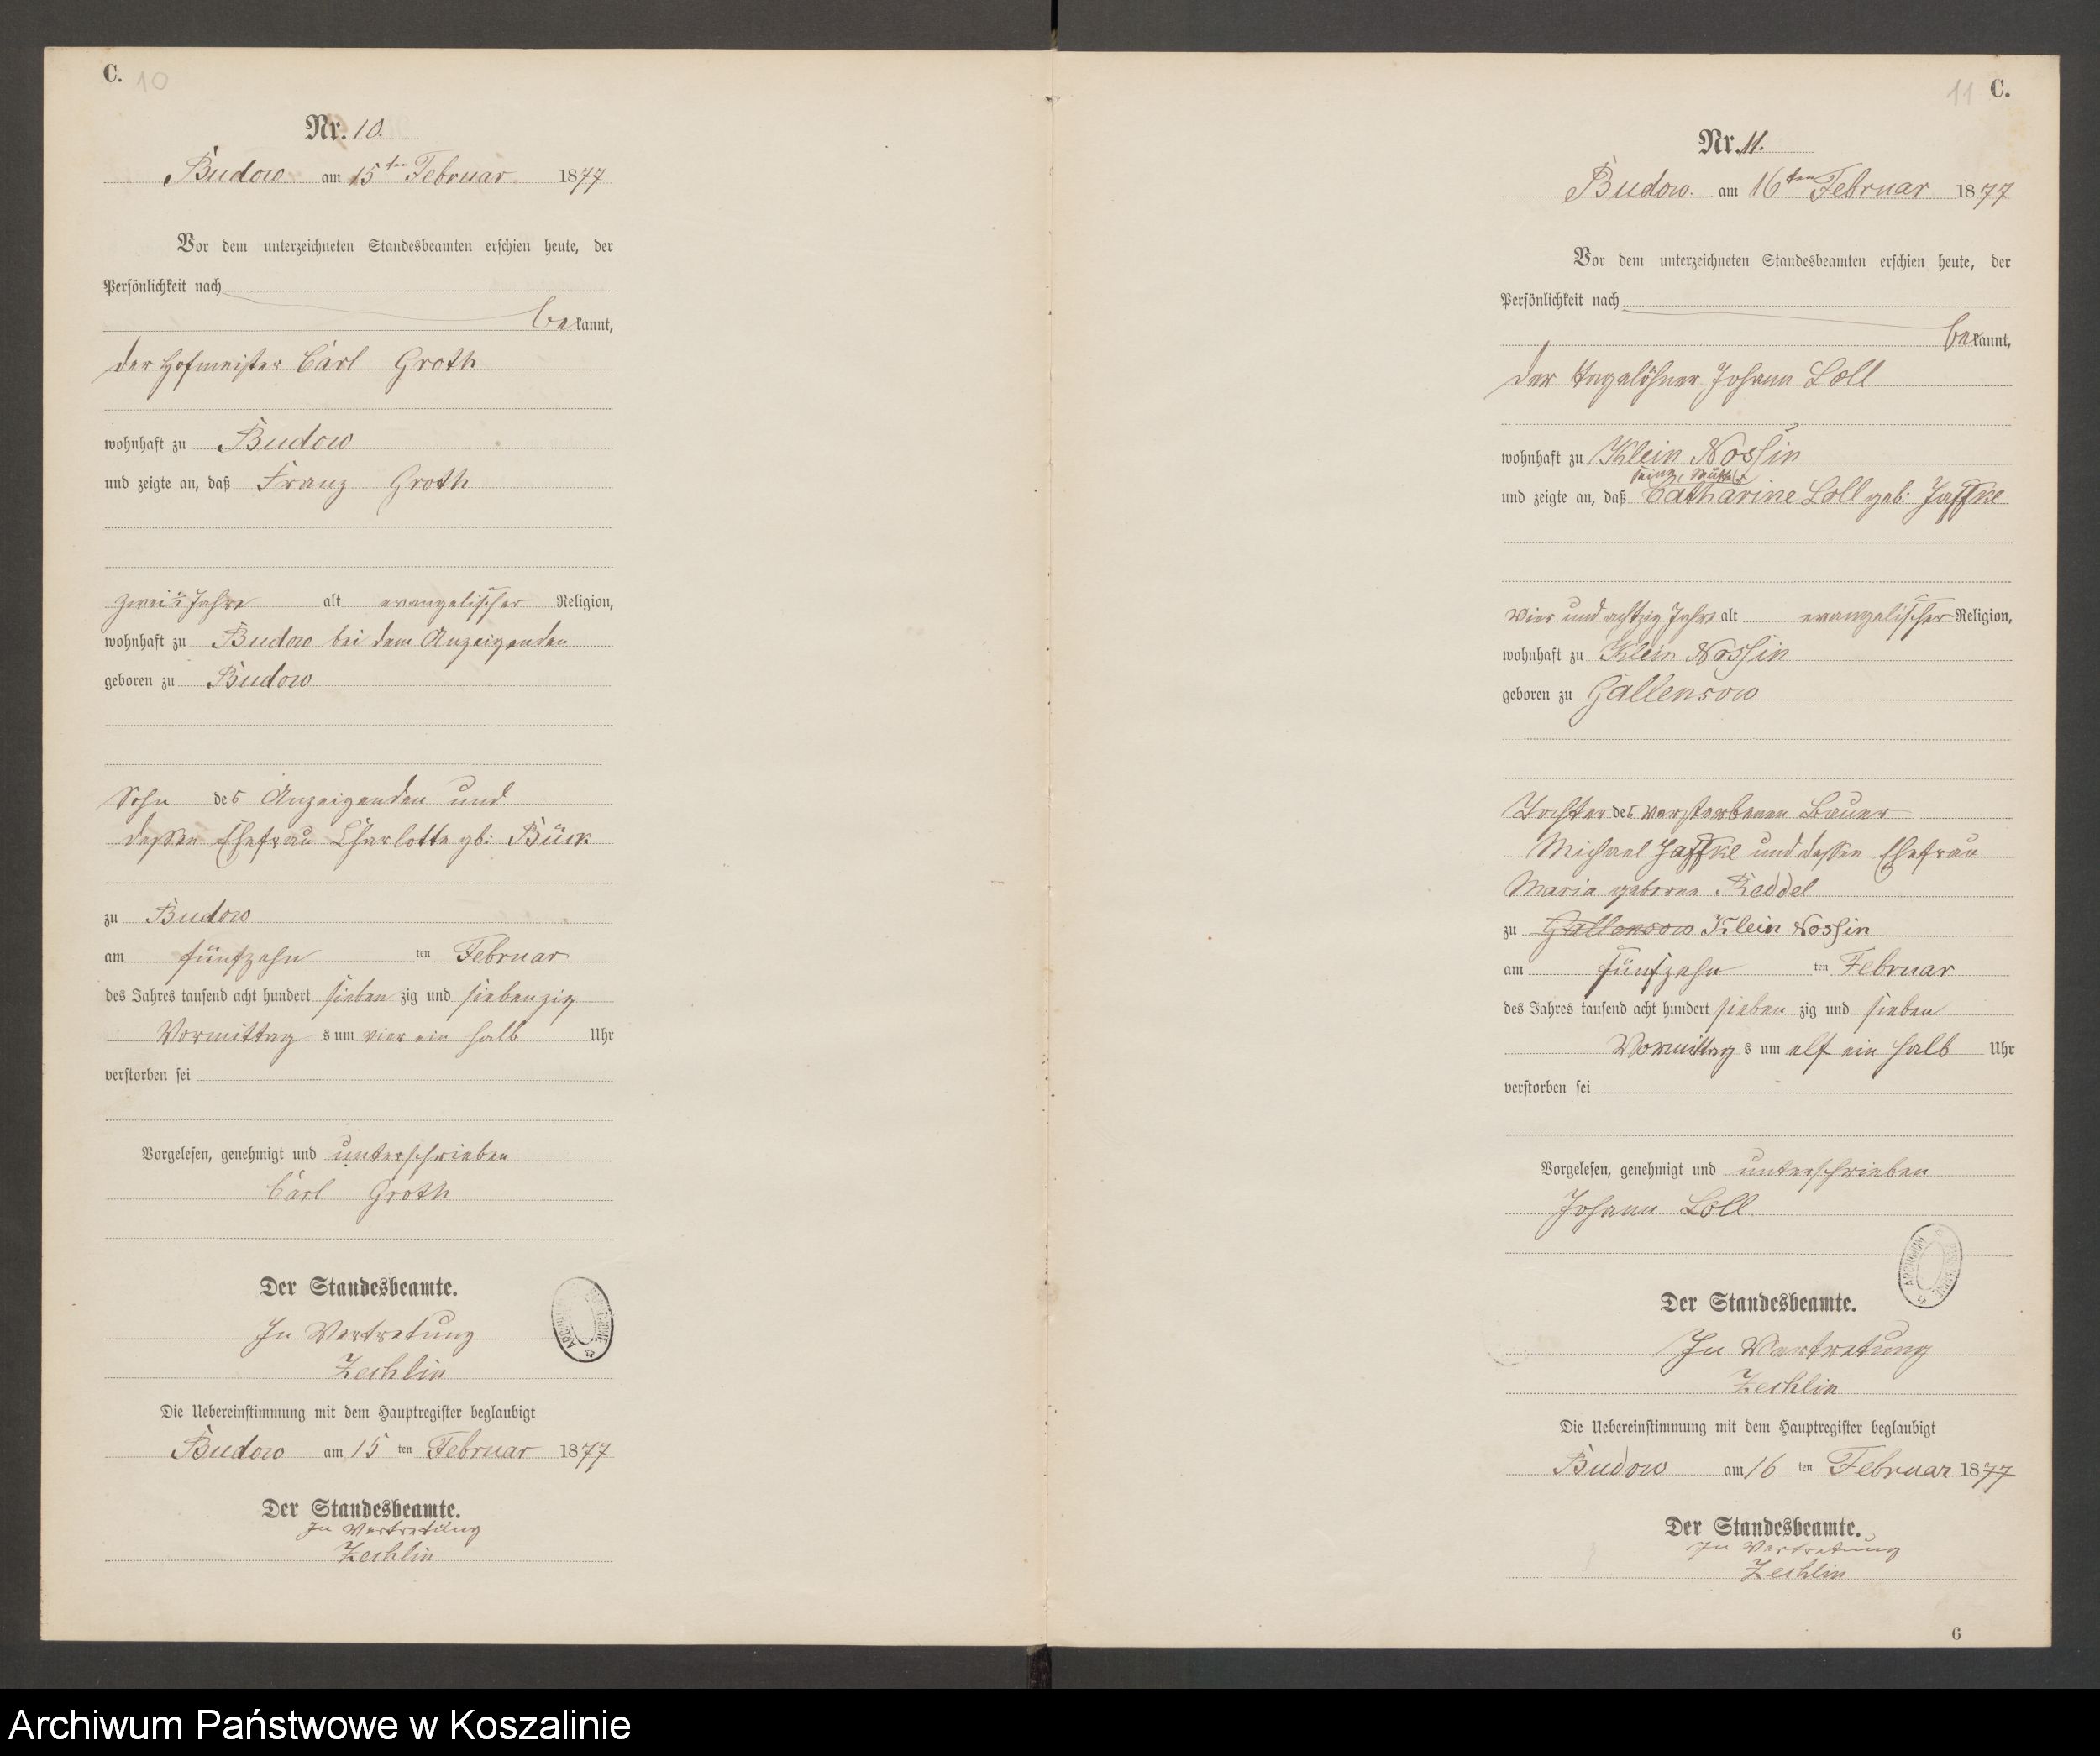 C. 10
Nr. 10.
Budow am 15ten Februar 1877
Vor dem unterzeichneten Standesbeamten erschien heute, der
Persönlichkeit nach
bekannt,
der Hofmeister Carl Groth
wohnhaft zu Budow
und zeigte an, daß Franz Groth
zwei 1/2 Jahre alt evangelischer Religion,
wohnhaft zu Budow bei dem Anzeigenden
geboren zu Budow
Sohn des Anzeigenden und
dessen Ehefrau Charlotte gb: Bück
zu Budow
am fünfzehn ten Februar
des Jahres tausend acht hundert sieben zig und siebenzig
Vormittag s um vier ein halb Uhr
verstorben sei
Vorgelesen, genehmigt und unterschrieben
Carl Groth
Der Standesbeamte.
In Vertretung
Zechlin
Die Uebereinstimmung mit dem Hauptregister beglaubigt
Budow am 15 ten Februar 1877
Der Standesbeamte.
In Vertretung
Zechlin
11 C.
Nr. 11.
Budow. am 16ten Februar 1877
Vor dem unterzeichneten Standesbeamten erschien heute, der
Persönlichkeit nach
bekannt,
der Tagelöhner Johann Loll
wohnhaft zu Klein Nossin
seine Mutter
und zeigte an, daß Catharine Loll geb: Jaffke
vier und achtzig Jahr alt evangelischer Religion,
wohnhaft zu Klein Nossin
geboren zu Gallensow
Tochter des verstorbenen Bauer
Michael Jaffke und dessen Ehefrau
Maria geborne Reddel
zu Gallensow Klein Nossin
am fünfzehn ten Februar
des Jahres tausend acht hundert sieben zig und sieben
Vormittag s um elf ein halb Uhr
verstorben sei
Vorgelesen, genehmigt und unterschrieben
Johann Loll
Der Standesbeamte.
In Vertretung
Zechlin
Die Uebereinstimmung mit dem Hauptregister beglaubigt
Budow am 16 ten Februar 1877
Der Standesbeamte.
In Vertretung
Zechlin
6
Archiwum Państwowe w Koszalinie